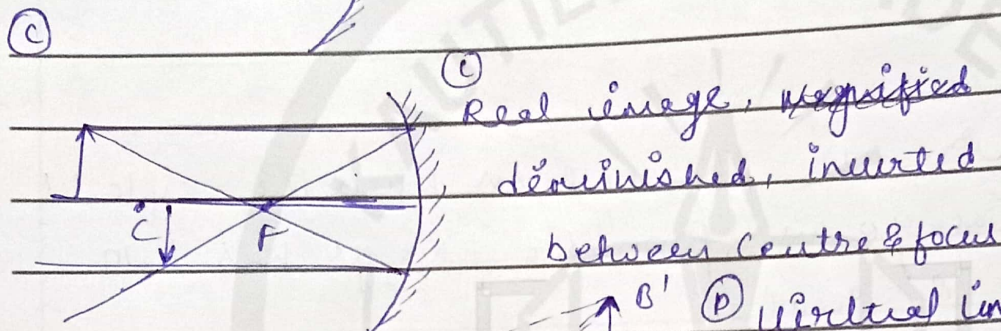 Ⓒ
Ⓒ
Real image,
diminished, inverted
between Centre & focus
C F
B' Ⓓ Virtual